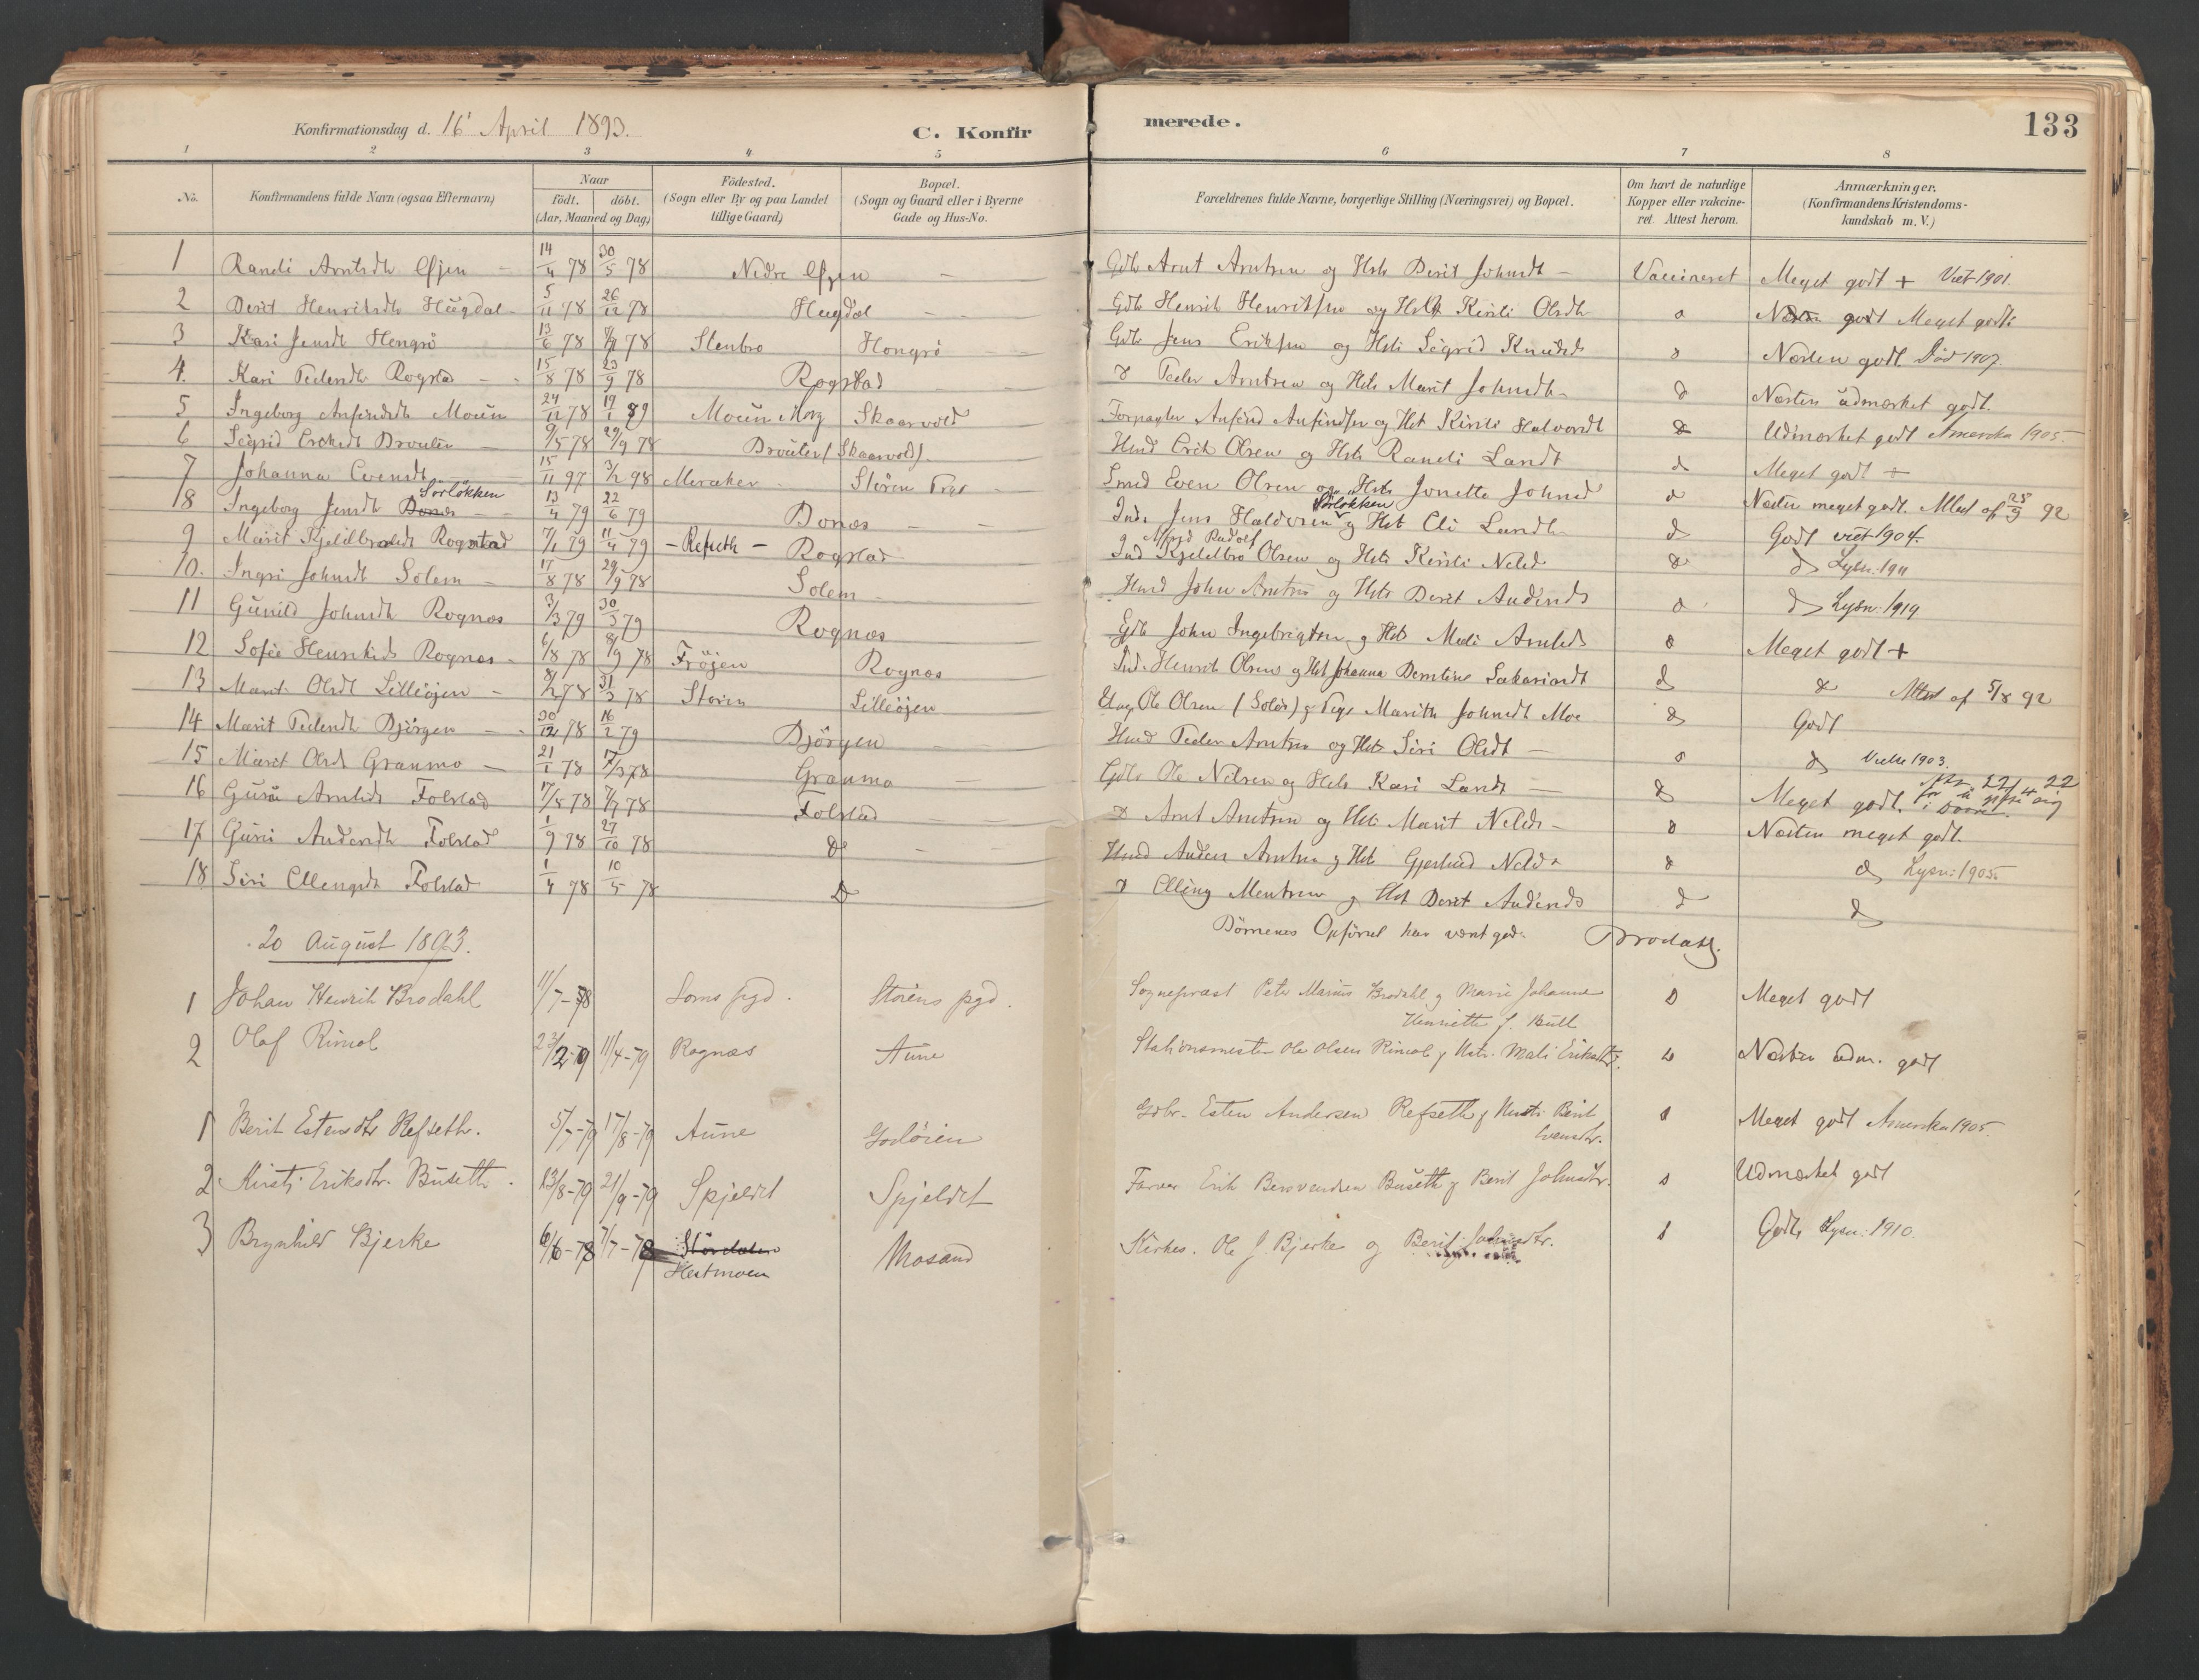 Konfirmationsdag d. 16' April 1893. C. Konfirmerede. 133
1 2 3 4 5 6 7 8
No. Konfirmandens fulde Navn (ogsaa Efternavn) Naar födt. döbt. (Aar, Maaned og Dag) Födested. (Sogn eller By og paa Landet tillige Gaard) Bopæl. (Sogn og Gaard eller i Byerne Gade og Hus-No. Forældrenes fulde Navne, borgerlige Stilling (Næringsvei) og Bopæl. Om havt de naturlige Kopper eller vakcineret. Attest herom. Anmærkninger. (Konfirmandens Kristendomskundskab m. V.)
1 Randi Arntsdtr 14/4 78 30/5 78 Nedre Gdb Arnt Arntsen og Hst Berit Johnsdt Vaccineret Meget godt + Viet 1901.
2 Berit Henriksdtr Hugdal 5/11 78 26/12 78 Hugdal Gdb Henrik Henriksen og Hst Kirsti Olsdtr Meget godt
3 Kari Jensdt 13/6 78 Stenbro Gdb Jens Eriksen og Hst Sigrid Knudsd Næsten godt. Død 1907.
4. Kari Pedersdtr Rogstad 15/8 78 23/9 78 Rogstad Peder Arntsen og Hst Marit Johnsdtr Næsten udmærket godt.
5 Ingeborg Anfindsdt Moen 24/12 78 19/1 89 Skaarvold Forpagter Anfind Anfindsen og Hst Kirsti Halvorsdt Udmærket godt Amerika 1905.
6 Sigrid Eriksdt 9/5 78 29/9 78 (Skaarvold) Husmd Erik Olsen og Hst Randi Larsdt Meget godt +
7 Johanna Evensdt 15/11 97 3/2 98 Meraker Støren Smed Even Olsen og Hst Jonetta Johnsd Næsten meget godt. Attest af 25/9 92
18 Ingeborg Jensdt Bonæs Sørløkken 13/4 79 22/6 79 Bonæs Inds Jens Haldorsen Sørløkken og Hst Eli Larsdtr Godt viet 1904.
9 Marit Kjeldbrosdt Rogstad 7/1 79 11/4 79 - Refseth - Rogstad Kjeldbro Olsen og Hst Kirsti Nilsd Lysn. 1911
10. Ingri Johnsdt Solem 17/8 78 29/9 78 Solem Husmd John Arntsen og Hst Berit Andersd Lysn. 1919
11 Gunild Johnsdt Rognæs 3/3 79 30/3 79 Rognæs Gdb John Ingebrigtsen og Hst Mali Arntsd Meget godt +
12 Sofie Henriksd Rognæs 6/8 78 8/9 78 Frøjen Rognæs Ind. Henrik Olsen og Hst Johanna Sakariasdt Attest af 5/8 92
13 Marit Olsdt Lilleøjen 8/2 78 31/3 78 Støren Lilleøjen Ole Olsen (Soløs) og Pige Marith Johnsdt Moe Godt
14 Marit Pedersdt Bjørgen 30/12 78 16/2 79 Bjørgen Husmd Peder Arntsen og Hst Siri Olsdt Vielse 1903.
15 Marit Olsd Granmo 21/1 78 17/3 78 Granmo Gdb Ole Nilsen og Hst Kari Larsdt Meget godt.
16 Guru Arntsd Folstad 17/5 78 7/7 78 Folstad Arnt Arntsen og Hst Marit Nilsdt Næsten meget godt.
17 Guri Andersdt Folstad 1/9 78 27/10 78 Husmd Anders Arntsen og Hst Gjertrud Nilsd Lysn: 1905.
18 Siri Ellingsdt Folstad 1/4 78 10/5 78 Elling Mentsen og Hst Berit Andersd
Børnenes Opførsel har været god. Brodahl.
20 August 1893.
1 Johan Henrik Brodahl 11/7-78 Soms pgd. Størens pgd. Sognepræst Peter Marius Brodahl og Marie Johanne Henriette f. Bull Meget godt
2 Olaf Rimol 23/2-79 11/4-79 Rognæs Aune Stationsmester Ole Olsen Rimol og Hstr. Mali Eriksdtr. Næsten udm. godt
1 Berit Estensdtr Refseth. 5/7-79 17/8-79 Aune Godøien Gdbr. Esten Andersen Refseth og Hustr Berit Evensdtr. Meget godt Amerika 1905.
2 Kirsti Eriksdtr. Buseth. 13/8-79 21/9-79 Spjeldet Spjeldet Farver Erik Buseth og Berit Johnsdtr. Udmærket godt
3 Brynhild Bjerke 6/6-78 7/7-78 Størdalen Hestmoen Mosand Kirkes. Ole J. Bjerke og Berit Godt, Lysn: 1910.